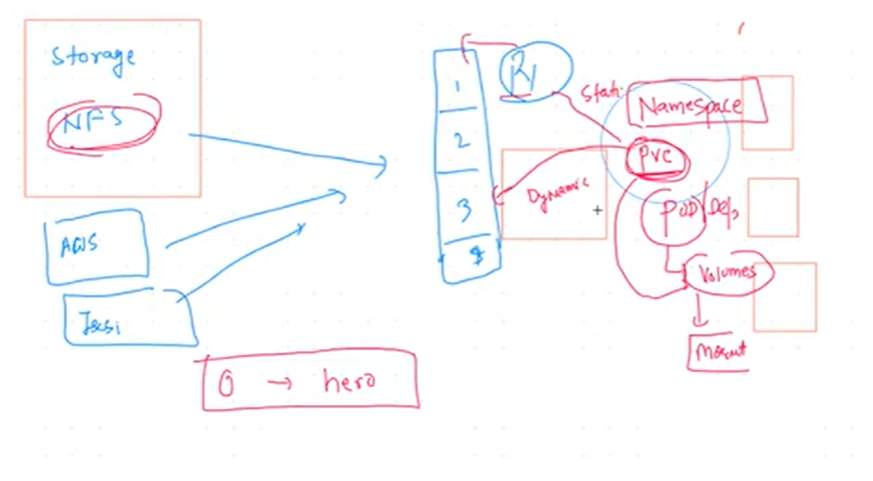 Storage
NFS
AWS
Iscsi
0 → hero
1
2
3
PV
Static
Namespace
PVC
Dynamic
POD/Dep
Volumes
Mount